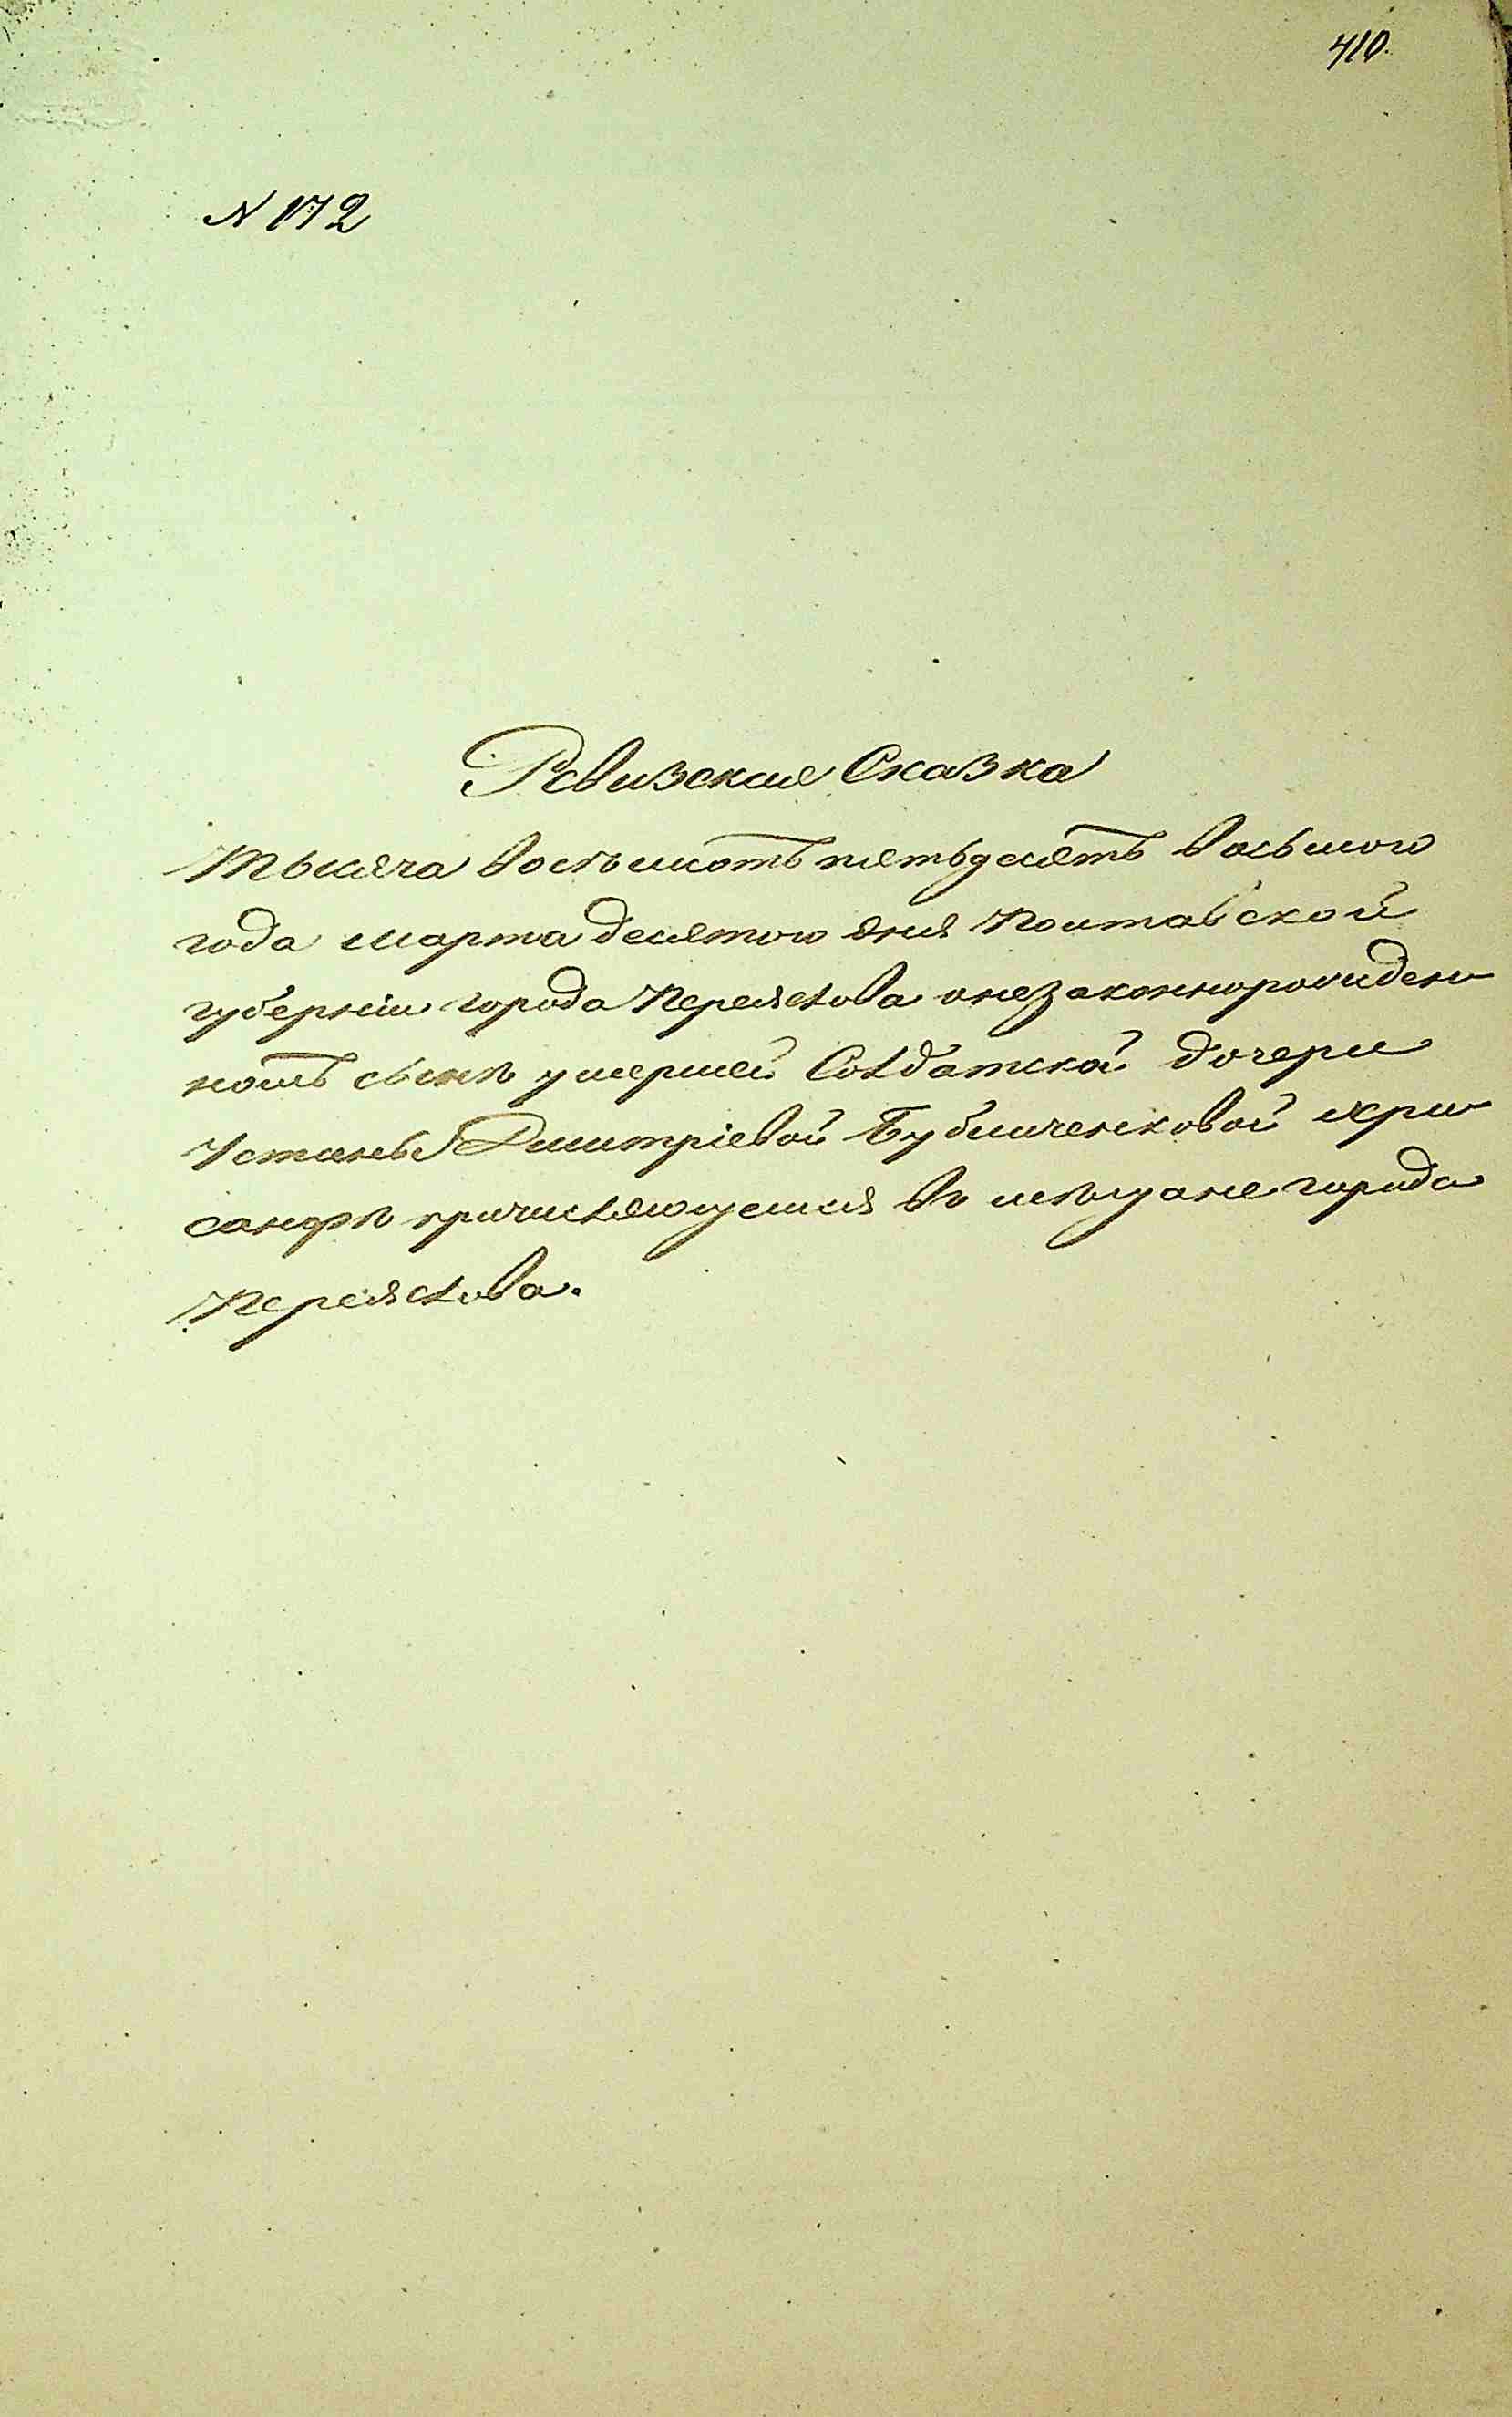 410.
N 172
Ревизская Сказка
Тысяча восемьсотъ пятьдесятъ восьмого
года марта десятого дня Полтавской
губерніи города Переяслова о незаконнорожден
номъ сынѣ умершей Солдатской дочери
Устины Дмитріевой Бубличенковой Хри
санфѣ причисляющемся въ мѣщане города
Переяслова.